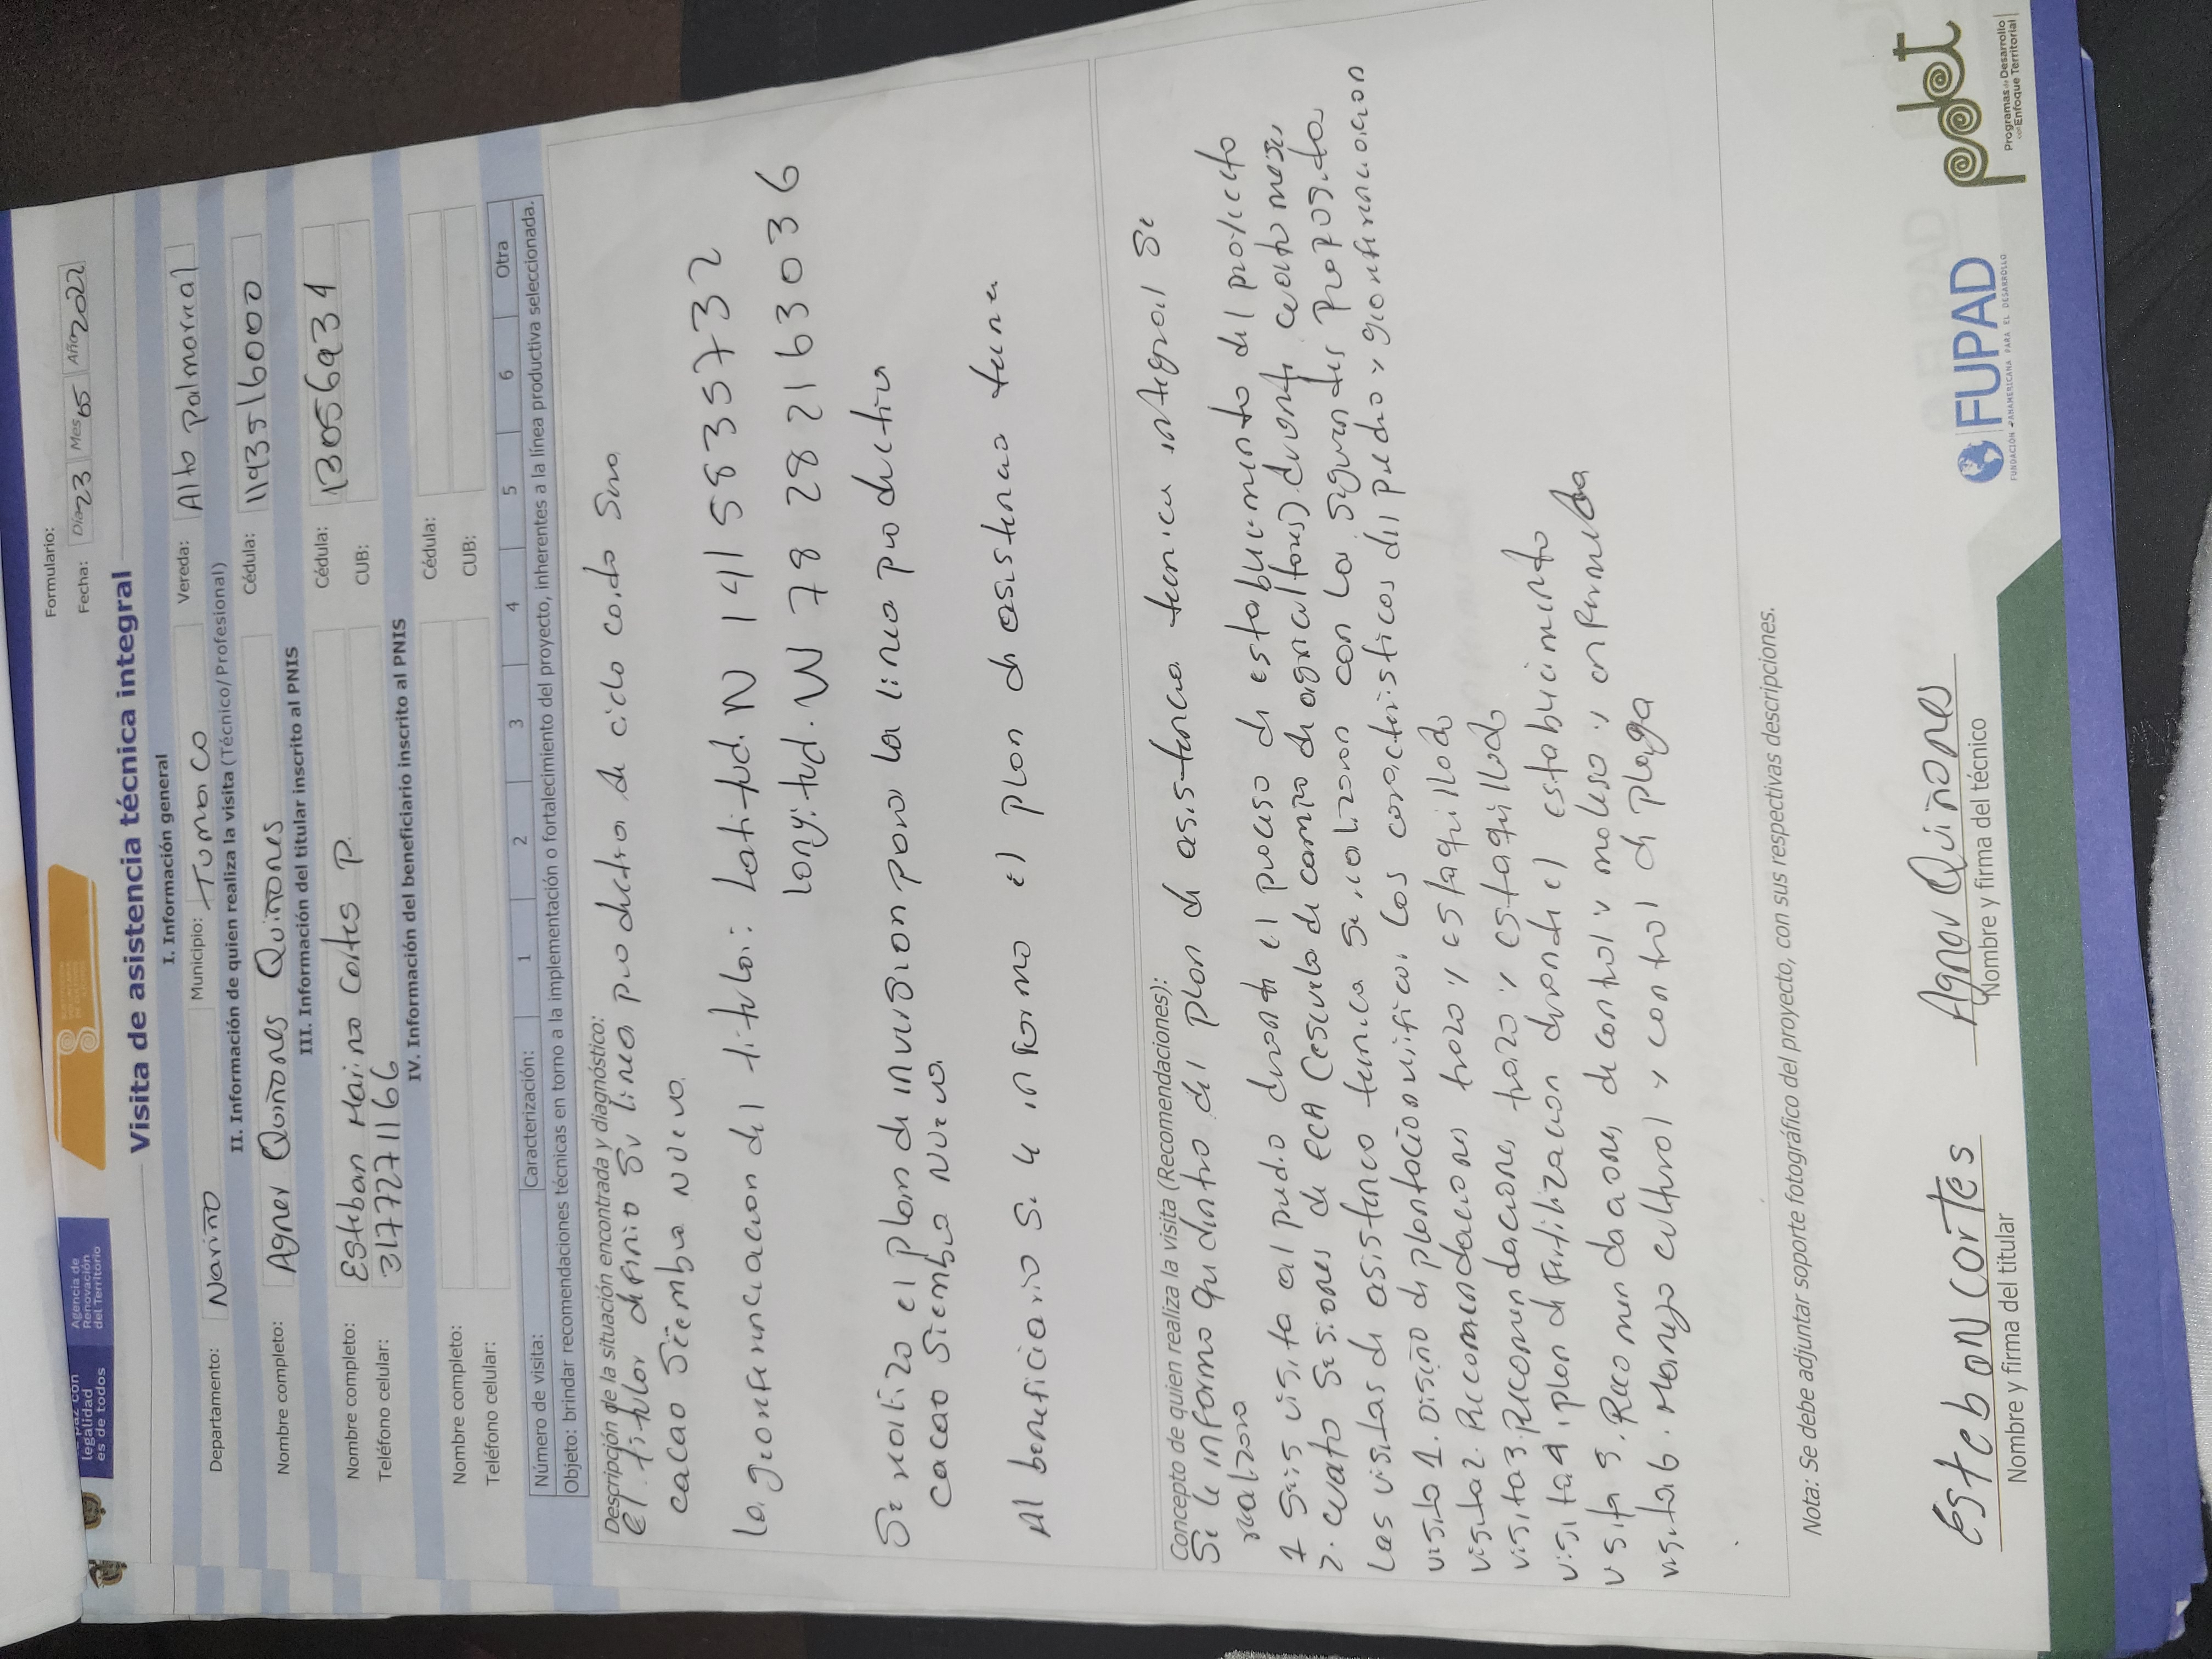 legalidad
es de todos
Agencia de
Renovación
del Territorio
Formulario:
Fecha: Día 23 Mes 05 Año 2022
Visita de asistencia técnica integral
I. Información general
Departamento: Nariño Municipio: Tumaco Vereda: Alto palmarreal
II. Información de quien realiza la visita (Técnico/Profesional)
Nombre completo: Agner Quiñones Quiñones Cédula: 1193516000
III. Información del titular inscrito al PNIS
Nombre completo: Esteban Marino Cortes P. Cédula: 13056934
Teléfono celular: 3177271166 CUB:
IV. Información del beneficiario inscrito al PNIS
Nombre completo: Cédula:
Teléfono celular: CUB:
Número de visita: Caracterización: 1 2 3 4 5 6 Otra
Objeto: brindar recomendaciones técnicas en torno a la implementación o fortalecimiento del proyecto, inherentes a la línea productiva seleccionada.
Descripción de la situación encontrada y diagnóstico:
El titular definio su linea productiva de ciclo corto Sera
cacao Siembra Nuevo.
La georeferenciacion del titular: Latitud. N 1 41 58 35732
Longitud. W 78 28 2163036
Se realizo el plan de inversion para la linea productiva
cacao Siembra Nuevo.
Al beneficiario Se le informo el plan de asistencia tecnica
Concepto de quien realiza la visita (Recomendaciones):
Se le informo que dentro del plan de asistencia tecnica integral Se
realizara
1 Seis visita al predio durante el proceso de establecimiento del proyecto
2. cuatro Sesiones de ECA (escuela de campo de agricultores) durante cuatro meses
Las visitas de asistencia tecnica Se realizaran con los siguientes proposito
visita 1. Diseño de plantacion verificar las caracteristicas del predio y georeferenciacion
visita 2. Recomendaciones trazo y estaquillado
visita 3. Recomendaciones trazo y estaquillado
visita 4. plan de Fertilizacion durante el establecimiento
visita 5. Recomendaciones de control v maleso y enfermedad
visita 6. Manejo cultural y control de plaga
Nota: Se debe adjuntar soporte fotográfico del proyecto, con sus respectivas descripciones.
Esteban Cortes
Nombre y firma del titular
Agner Quiñones
Nombre y firma del técnico
FUPAD
FUNDACIÓN PANAMERICANA PARA EL DESARROLLO
pdet
Programas de Desarrollo
con Enfoque Territorial